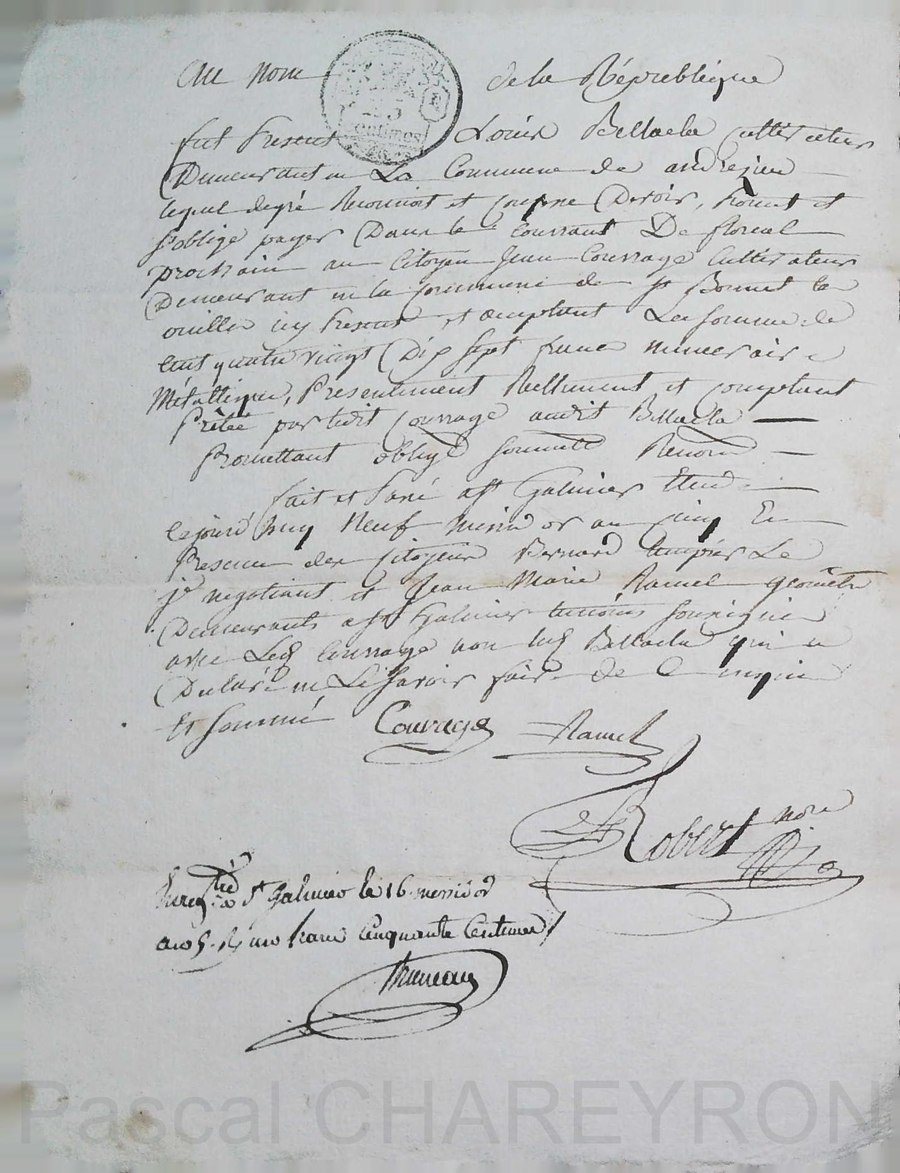 Au nom de la République
fut Present Louis Bellacla Cultivateur
Demeurant en La Commune de andrejeu
lequel degré Reconnoit et Devoir, Promet et
s'oblige payer Dans le Courrant De floreal
prochain au Citoyen Jean Couvrage Cultivateur
Demeurant en la Commune de St Bonnet les
ouilles icy Present et acceptant La somme de
Cent quatre vingt Dix Sept franc numeraire
Métallique, Presentement Rellement et comptant
Prêtée par ledit Couvrage audit Bellacla
Promettant obligé soumett Renon
fait et Passé a St Galmier Etude
cejourd'huy Neuf Messidor an Cinq En
Presence des Citoyens Bernard Le
je negotiant et Jean Marie Ramel géomètre
Demeurants a St Galmier temoins soussignés
avec Led Couvrage non led Bellacla qui a
Déclaré ne Le Savoir faire de ce enquis
Et sommé Couvrage Ramel
Robert nore
Enregtré a St Galmier le 16 messidor
an 5. R. un franc Cinquante Centimes